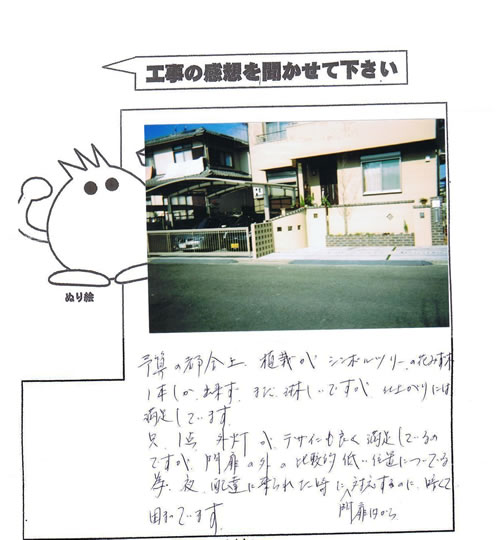 工事の感想を聞かせて下さい
ぬり絵
予算の都合上、植栽が シンボルツリーの花みずき
1本しか 出来ず、まだ 淋しいですが 仕上がりには
満足しています。
只、1点 外灯が、デザインも良く 満足しているの
ですが、門扉の外の 比較的 低い 位置についている
為、夜、配達に来られた時に、対応するのに、暗くて
門扉内から
困っています。